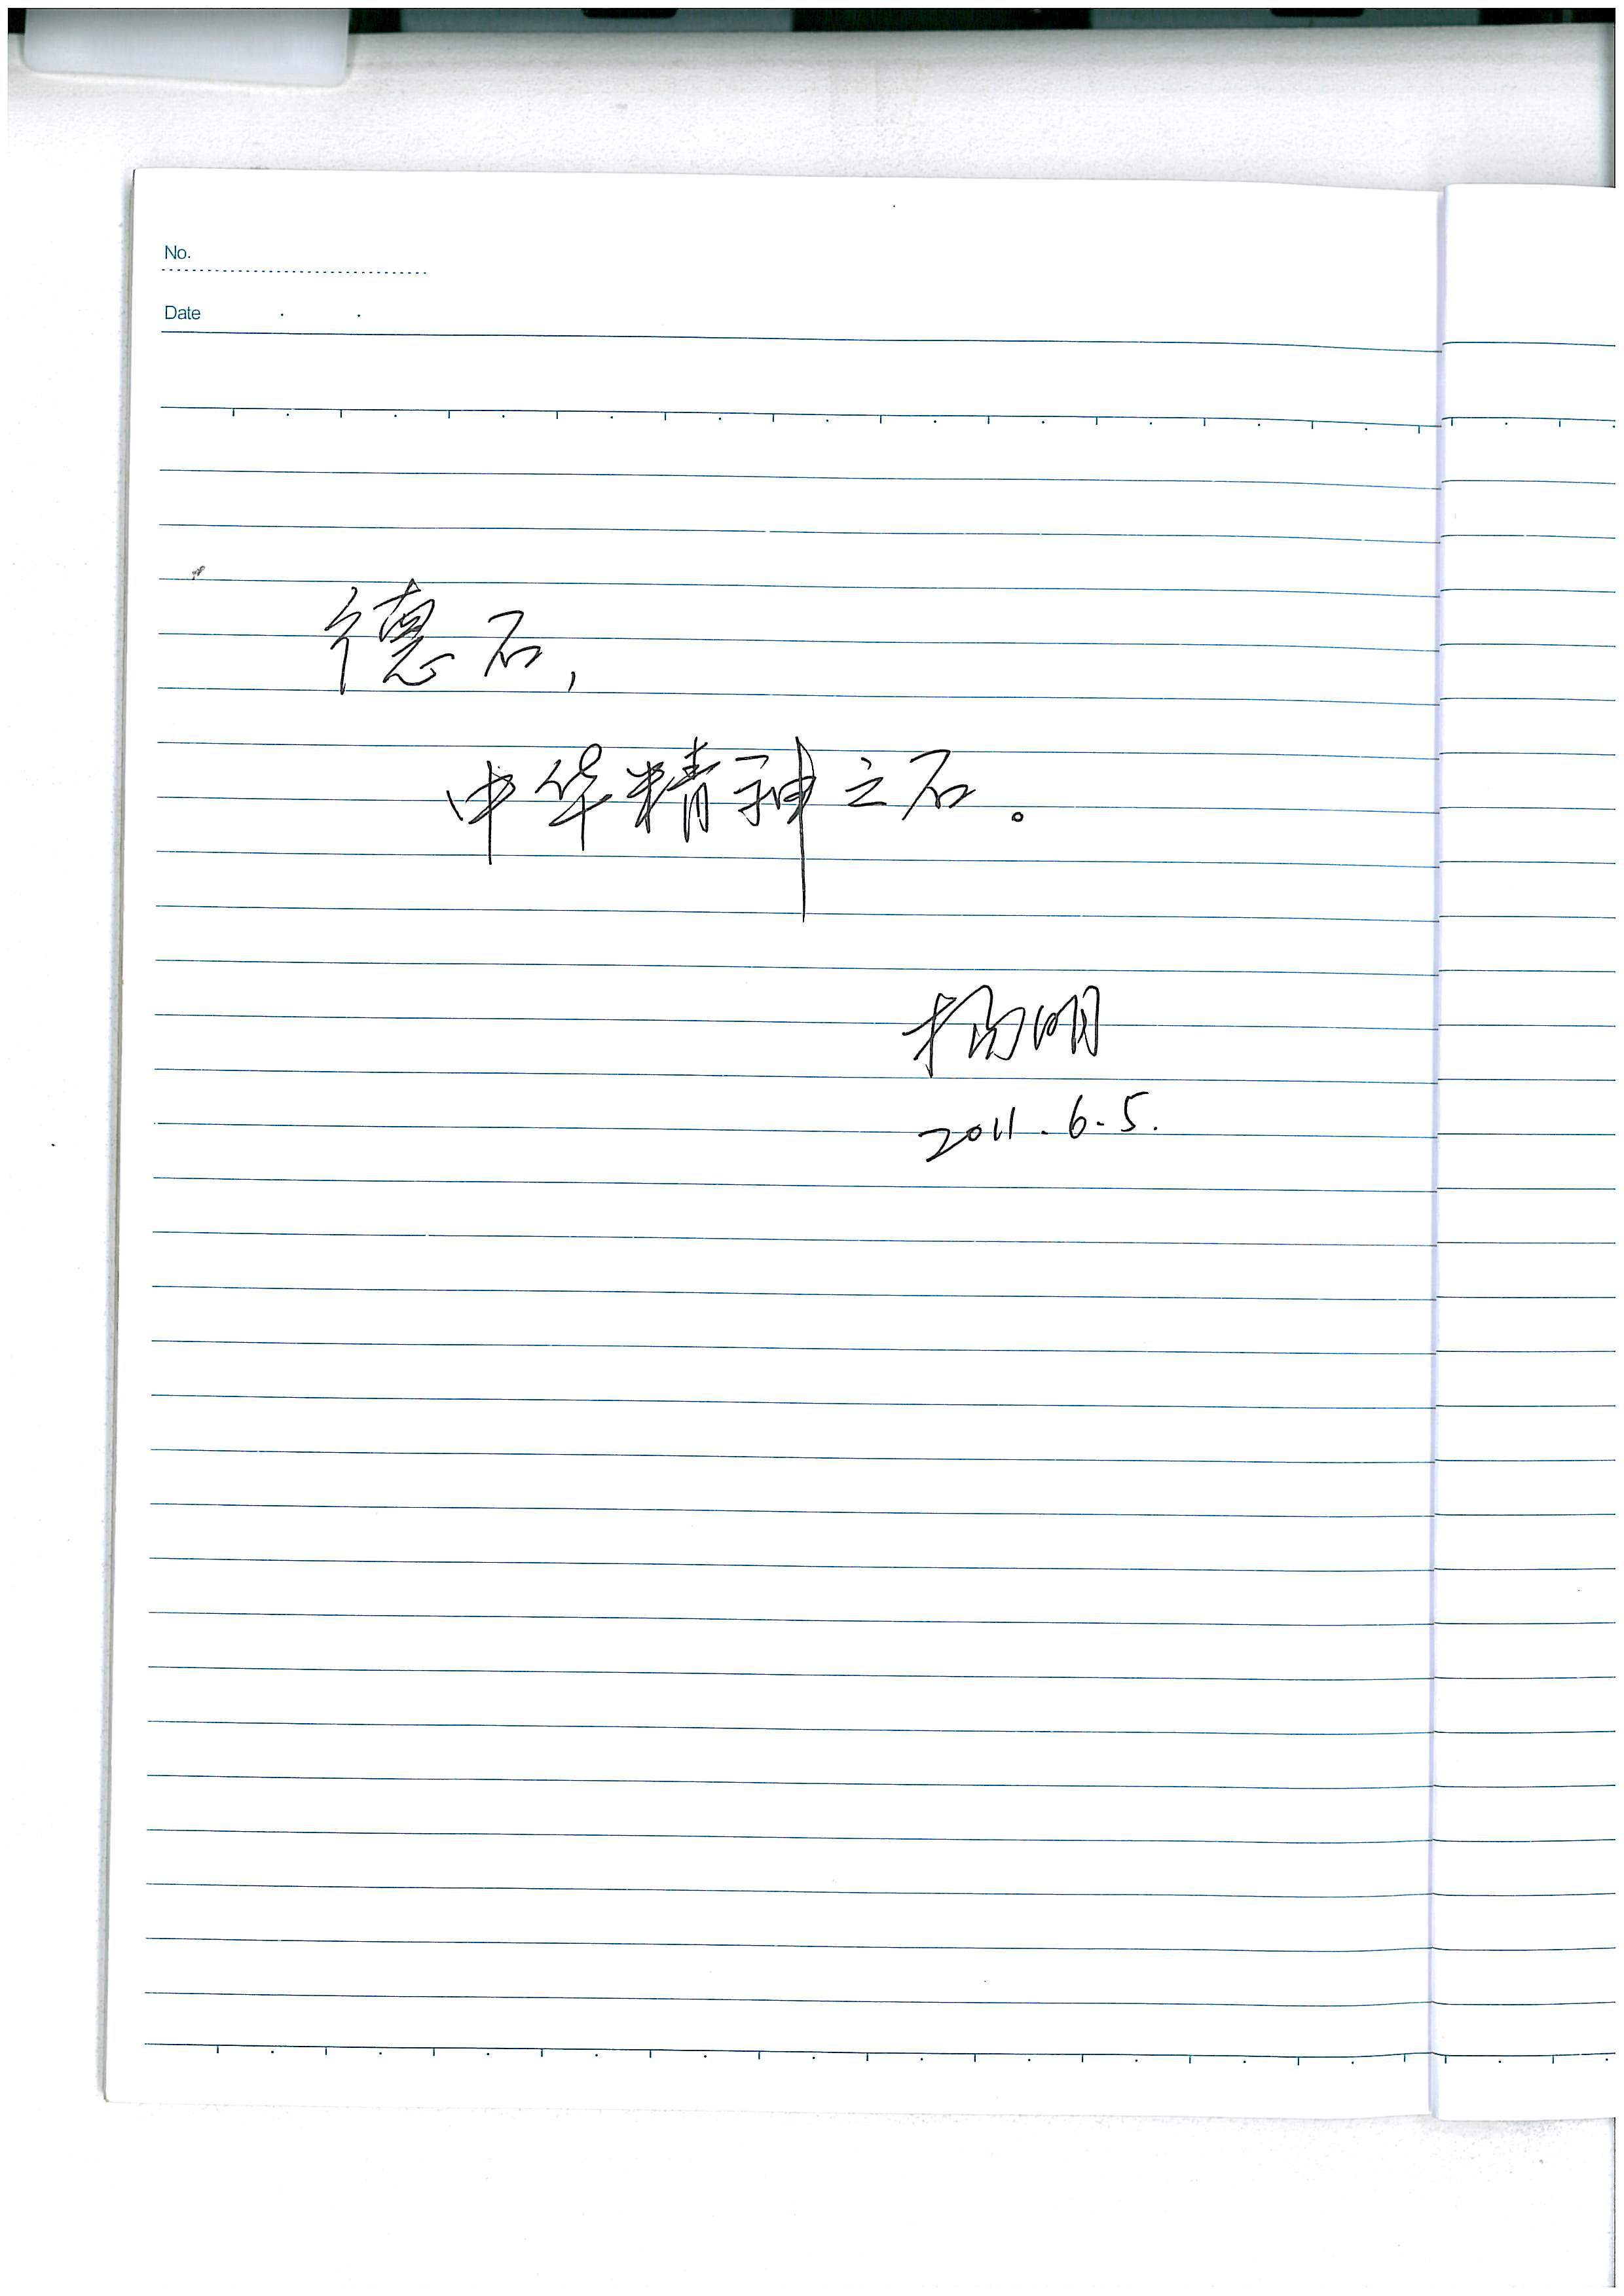 No.
Date
德石,
中华精神之石。
杨明
2011.6.5.